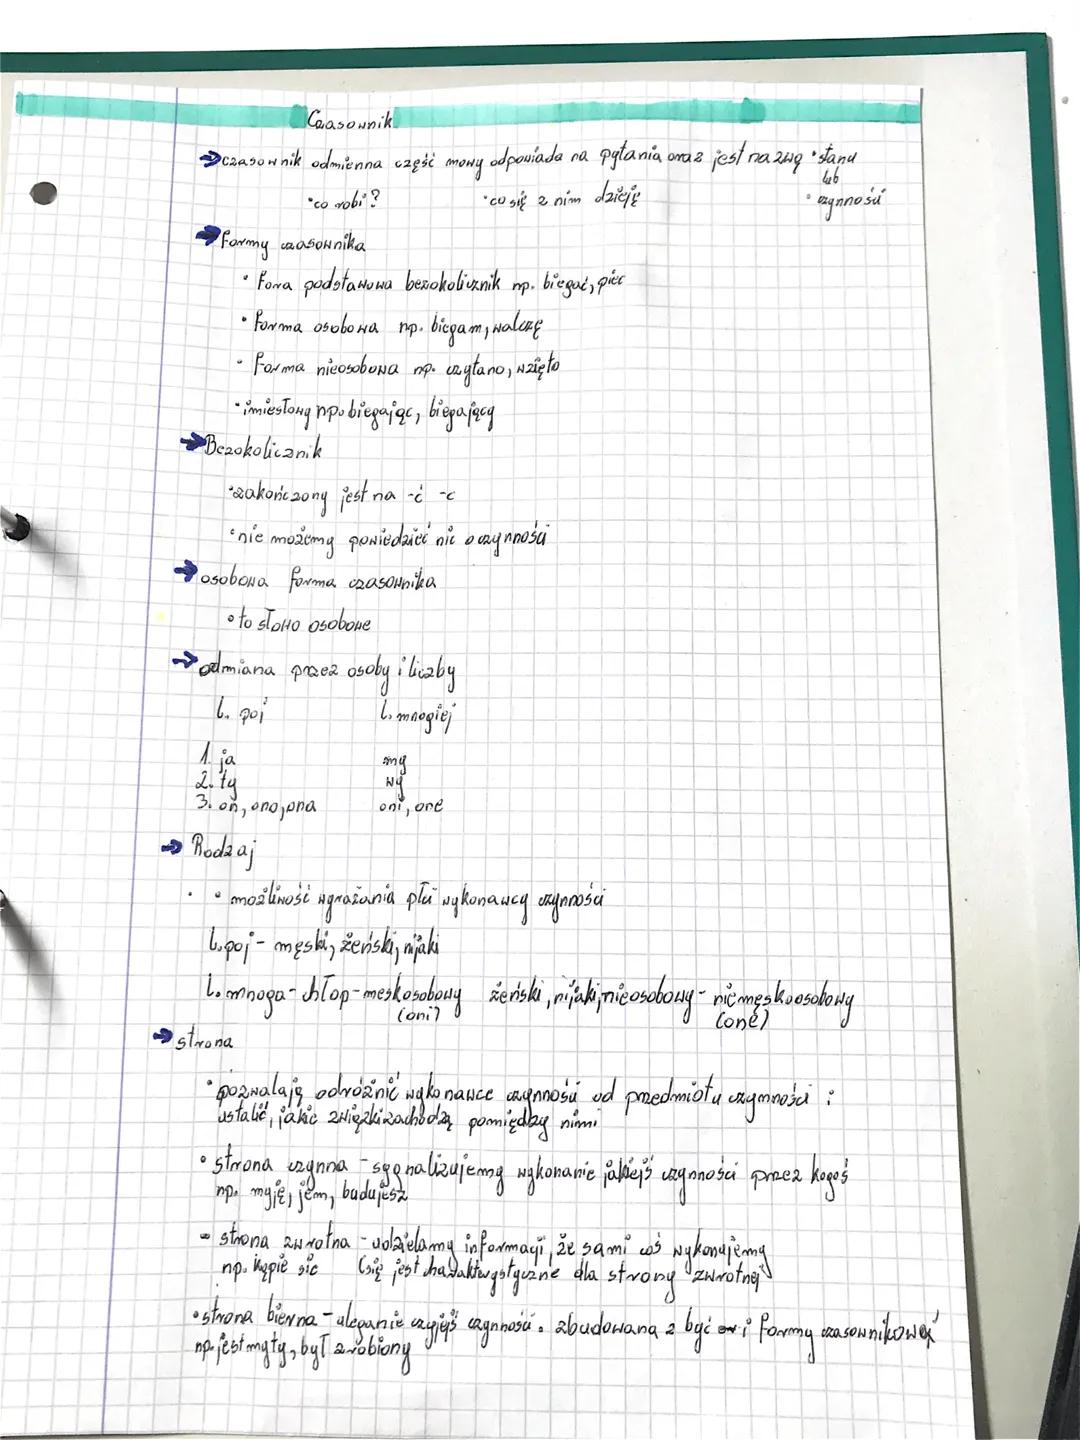 Czasownik
→ czasownik odmienna część mowy odpowiada na pytania oraz jest nazwą • stanu
lub
• co robi? • co się z nim dzieję • czynności
→ Formy czasownika
• Fora podstawowa bezokolicznik np. biegać, piec
• Forma osobowa np. biegam, walczę
• Forma nieosobowa np. czytano, wzięto
• imiesłowy np. biegając, biegający
→ Bezokolicznik
• zakończony jest na -ć -c
• nie możemy powiedzieć nic o czynności
→ osobowa forma czasownika
• to słowo osobowe
→ odmiana przez osoby i liczby
l. poj l. mnogiej
1. ja my
2. ty wy
3. on, ono, ona oni, one
→ Rodzaj
• możliwość wyrażania płci wykonawcy czynności
l. poj - męski, żeński, nijaki
l. mnoga - chłop - meskosobowy żeński, nijaki, nieosobowy - niemęskoosobowy
(oni) (one)
→ strona
• pozwalają odróżnić wykonawce czynności od przedmiotu czynności i
ustalić, jakie związki zachodzą pomiędzy nimi
• strona czynna - sygnalizujemy wykonanie jakiejś czynności przez kogoś
np. myję, jem, budujesz
• strona zwrotna - udzielamy informacji, że sami coś wykonujemy
np. kąpie sie (się jest charakterystyczne dla strony zwrotnej
• strona bierna - uleganie czyjejś czynności. zbudowana z być i formy czasownikowej
np. jest myty, był zrobiony